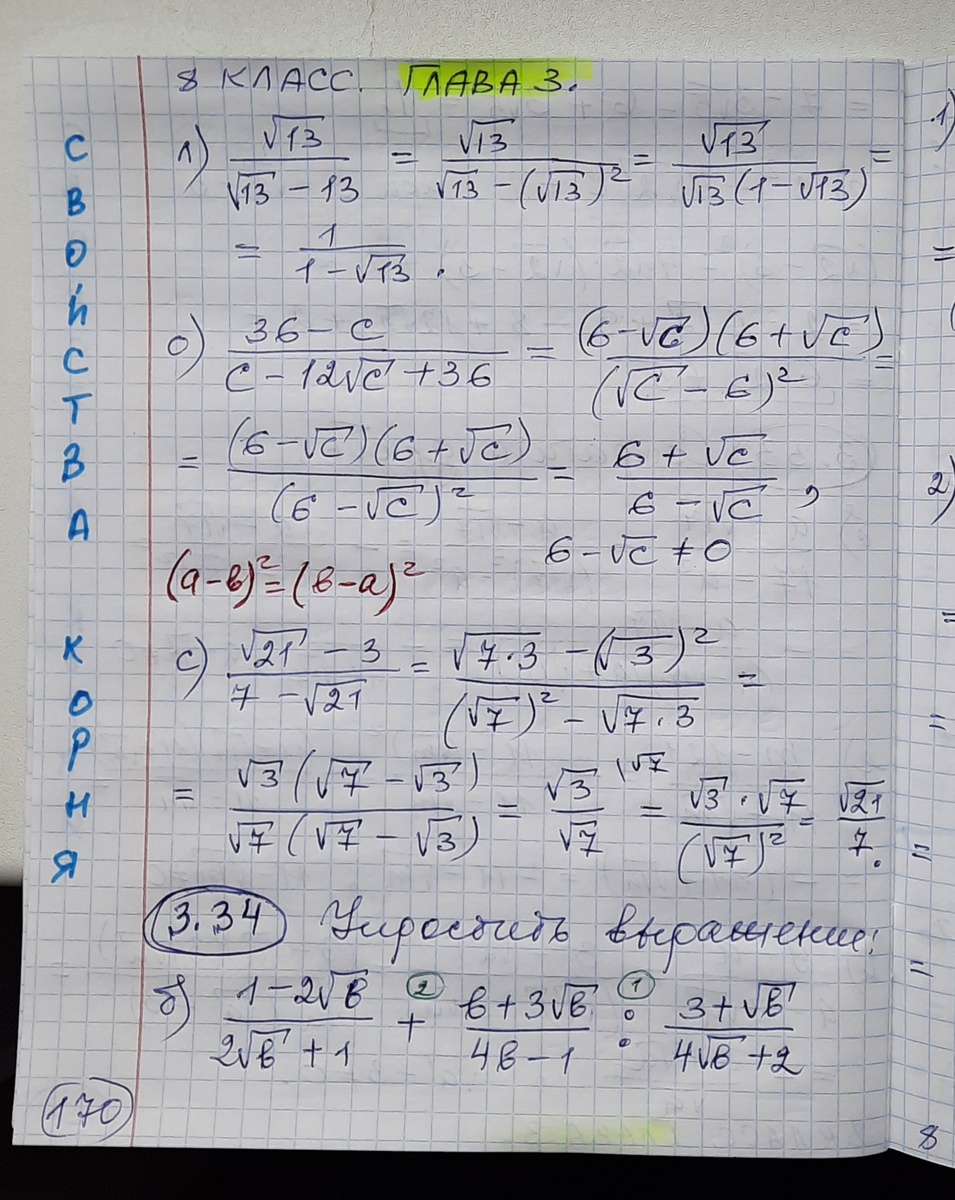 8 КЛАСС. ГЛАВА 3.
СВОЙСТВА КОРНЯ
л) √13 / (√13 − 13) = √13 / (√13 − (√13)²) = √13 / (√13 (1 − √13)) =
= 1 / (1 − √13) .
о) (36 − c) / (c − 12√c + 36) = (6 − √c)(6 + √c) / (√c − 6)² =
= (6 − √c)(6 + √c) / (6 − √c)² = (6 + √c) / (6 − √c) ,
6 − √c ≠ 0
(а − в)² = (в − а)²
с) (√21 − 3) / (7 − √21) = (√7·3 − (√3)²) / ((√7)² − √7·3) =
= √3 (√7 − √3) / (√7 (√7 − √3)) = √3 / √7 \√7 = √3 · √7 / (√7)² = √21 / 7 .
3.34 Упростить выражение:
б) (1 − 2√в) / (2√в + 1) + ② (в + 3√в) / (4в − 1) : ① (3 + √в) / (4√в + 2)
170
1)
=
2)
=
=
=
=
8